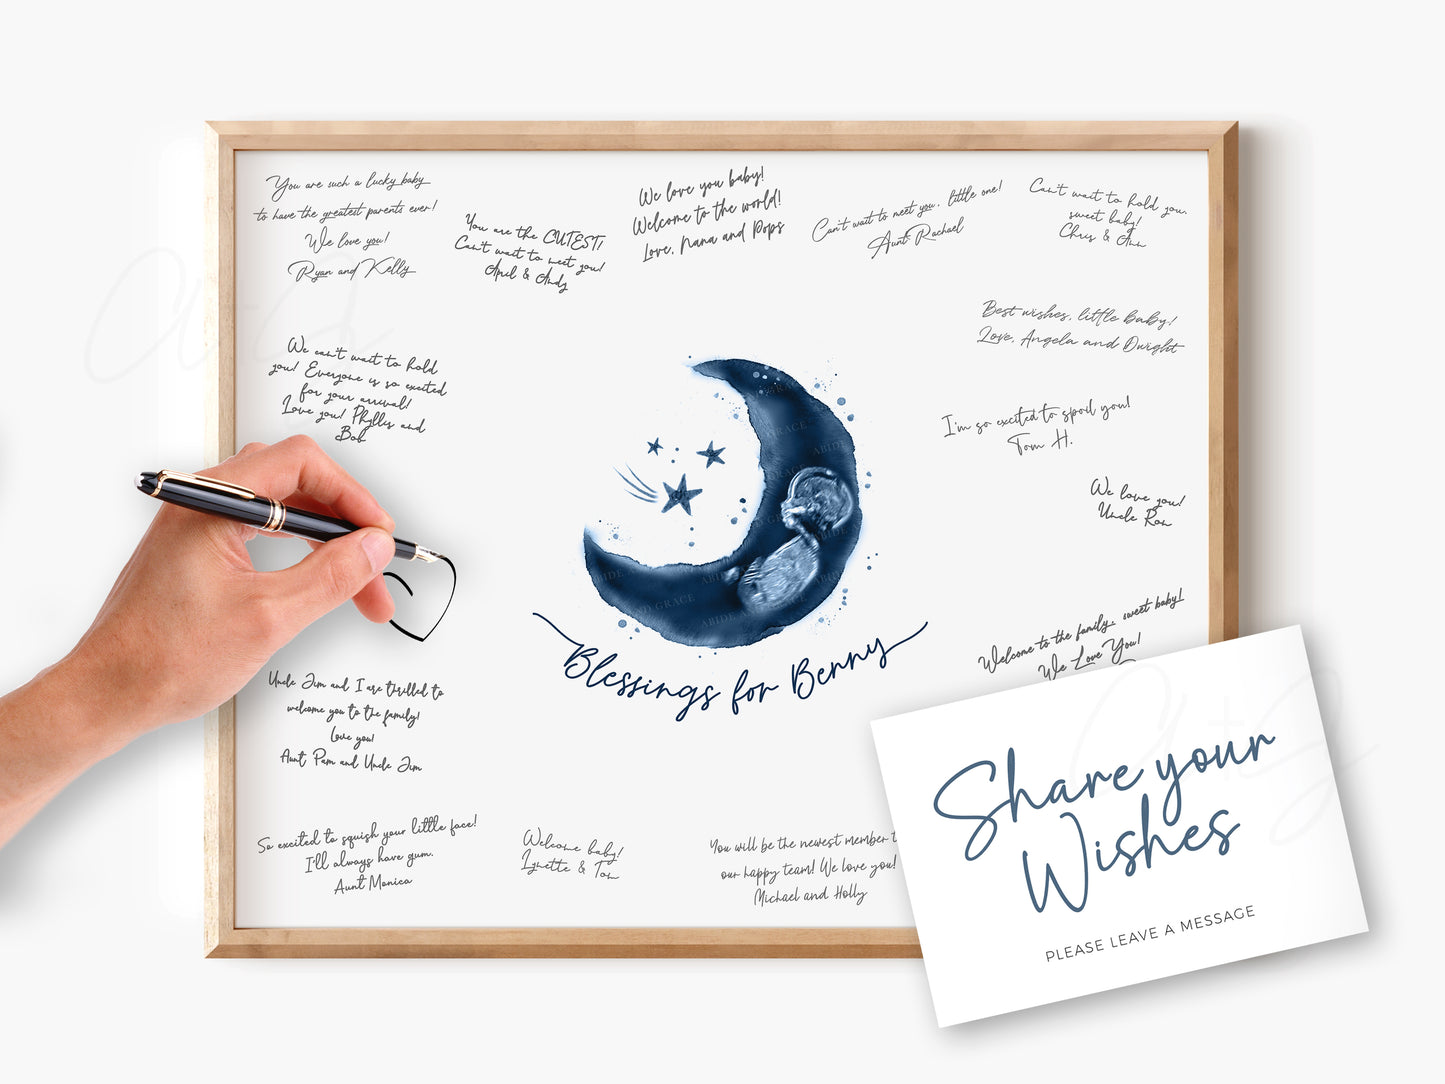 You are such a lucky baby
to have the greatest parents ever!
We love you!
Ryan and Kelly
You are the CUTEST!
Can't wait to meet you!
April & Andy
We love you baby!
Welcome to the world!
Love, Nana and Pops
Can't wait to meet you, little one!
Aunt Rachael
Can't wait to hold you,
sweet baby!
Chris & Ann
Best wishes, little baby!
Love, Angela and Dwight
We can't wait to hold
you! Everyone is so excited
for your arrival!
Love you! Phyllis and
Bob
I'm so excited to spoil you!
Tom H.
We love you!
Uncle Ron
ABIDE AND GRACE
ABIDE AND GRACE
Blessings for Benny
Welcome to the family, sweet baby!
We Love You!
Uncle Jim and I are thrilled to
welcome you to the family!
Love you!
Aunt Pam and Uncle Jim
So excited to squish your little face!
I'll always have gum.
Aunt Monica
Welcome baby!
Lynette & Tom
You will be the newest member t
our happy team! We love you!
Michael and Holly
Share your
Wishes
PLEASE LEAVE A MESSAGE